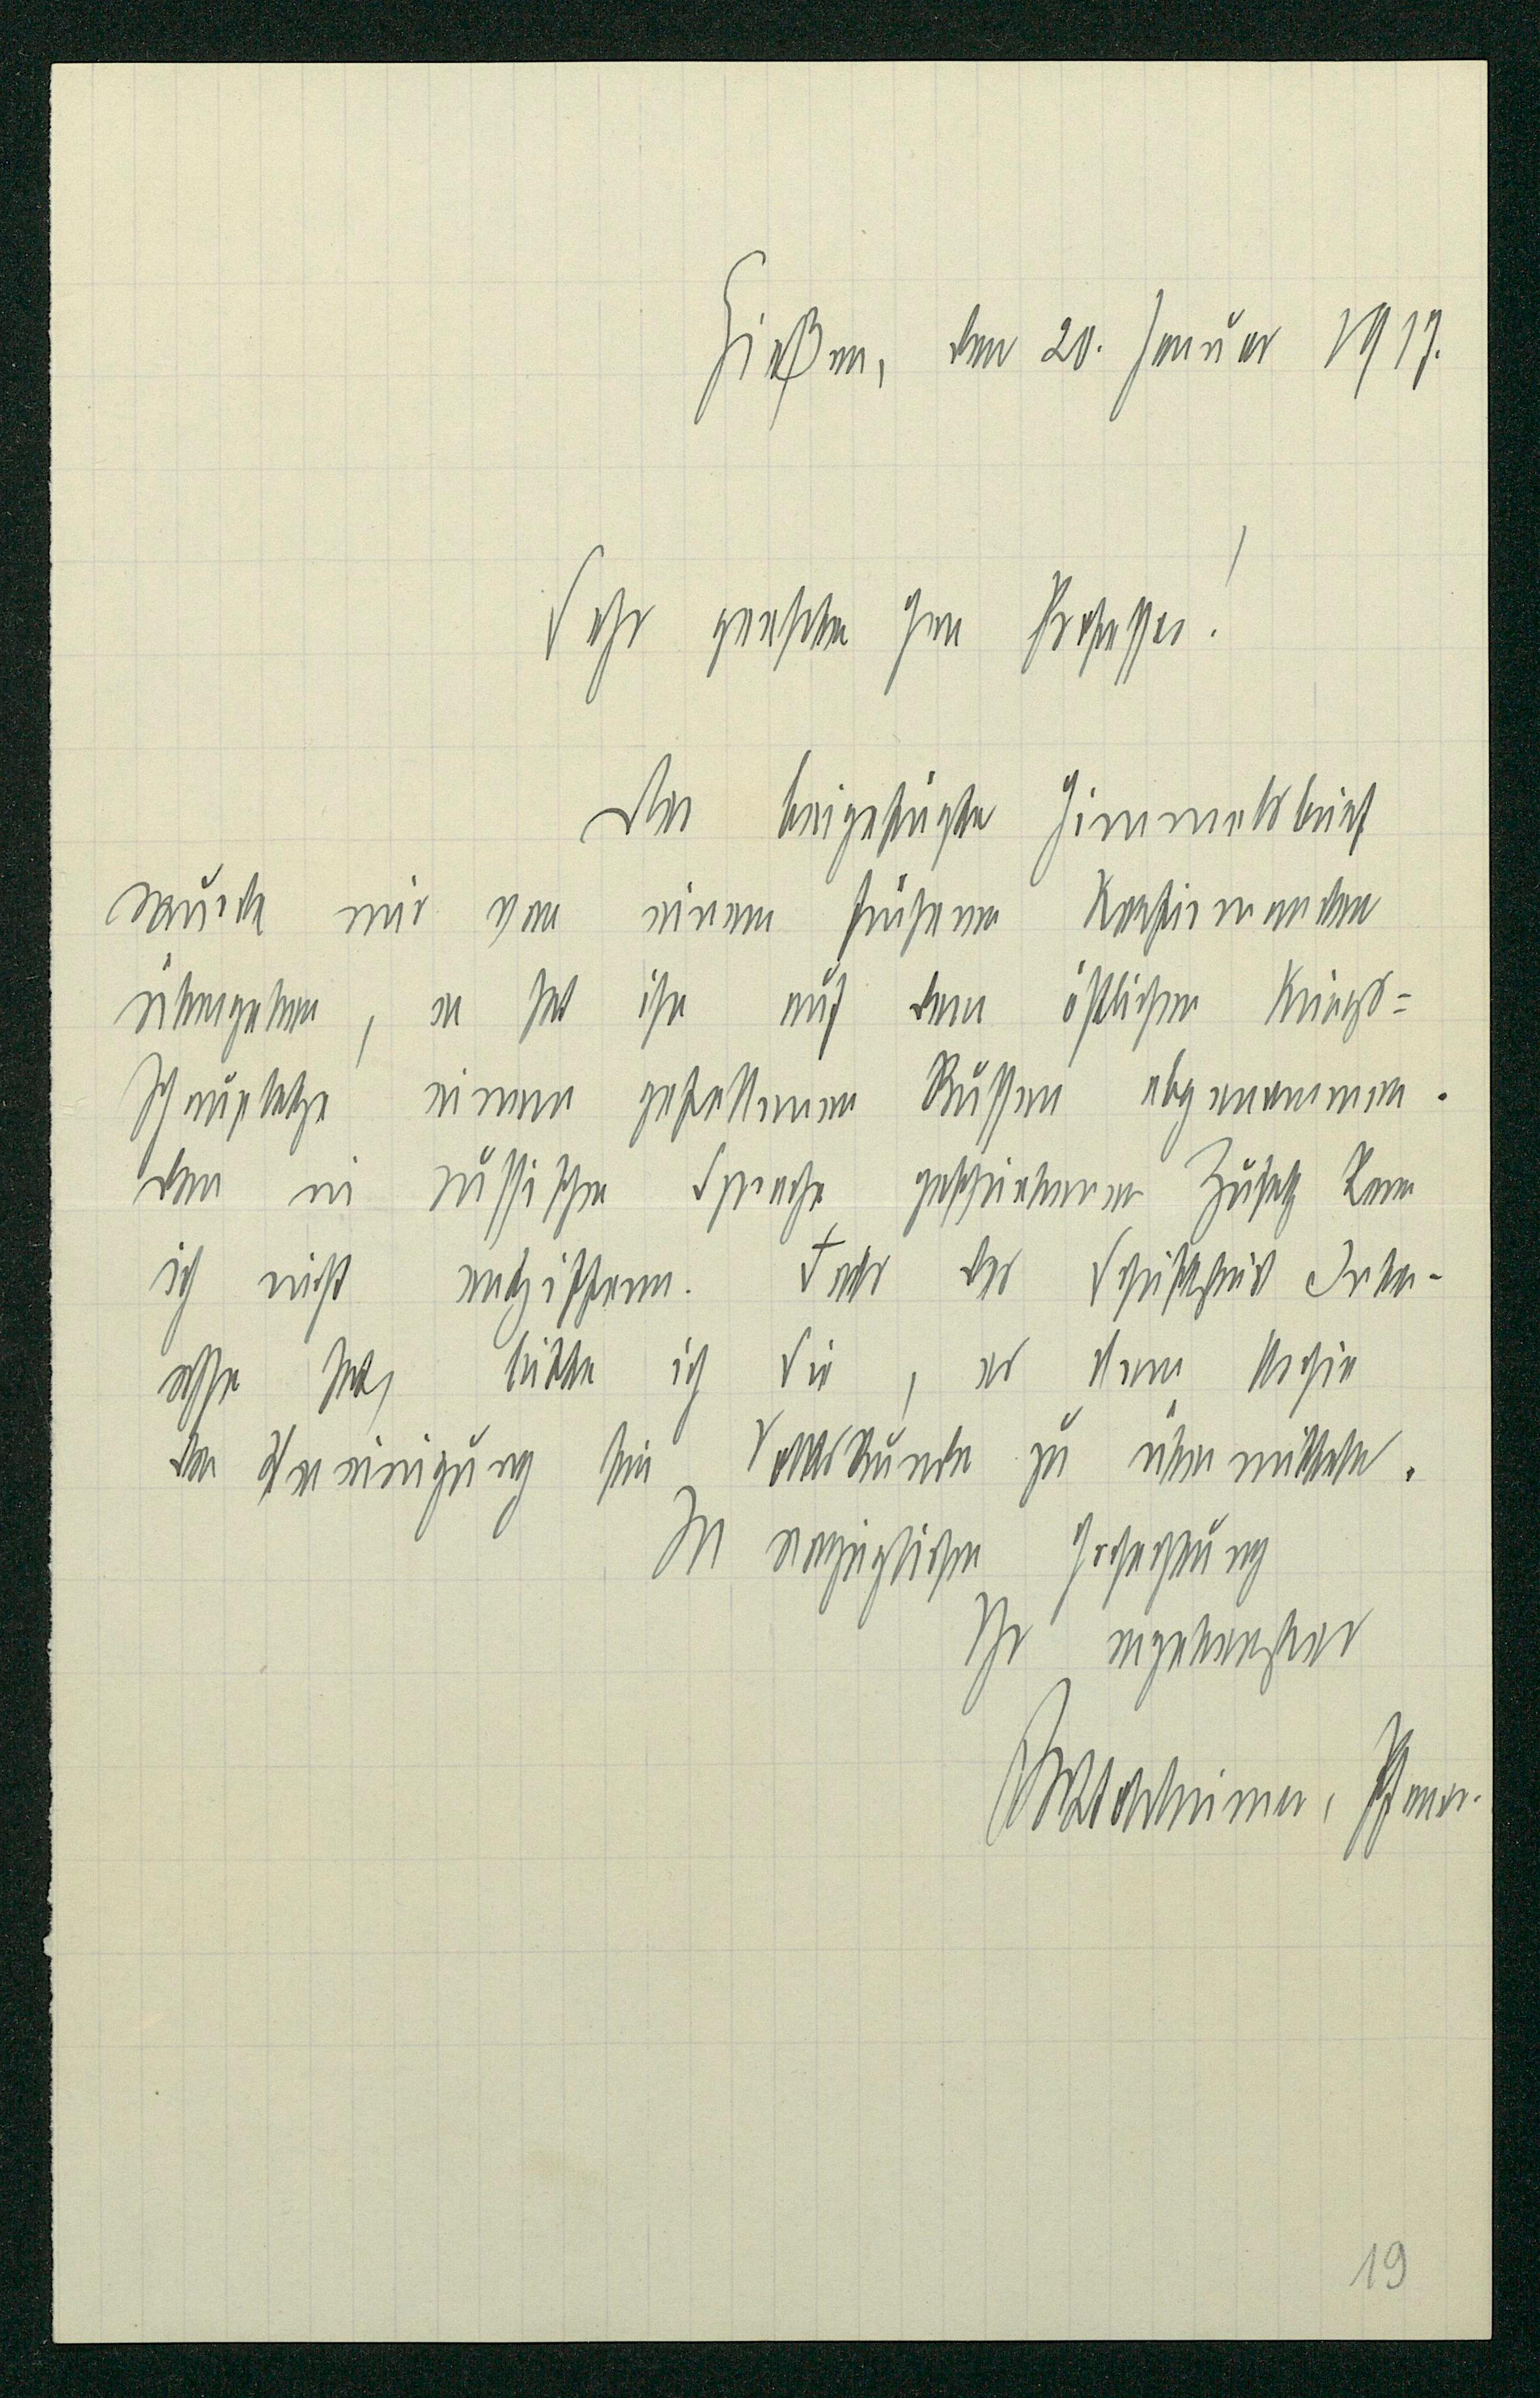 Gießen, den 20. Januar 1917.
Sehr geehrter Herr Professor!
Der beigefügte Himmelsbrief
wurde mir von einem früheren Konfirmanden
übergeben, er hat ihn auf dem östlichen Kriegs=
schauplatze einem gefallenen Russen abgenommen.
Den in russischer Sprache geschriebenen Zusatz kann
ich nicht entziffern. Falls das Schriftstück Inter-
esse hat, bitte ich Sie, es dem Archiv
der Vereinigung für Volkskunde zu übermitteln.
In vorzüglicher Hochachtung
Ihr ergebenster
Pfarrer.
19